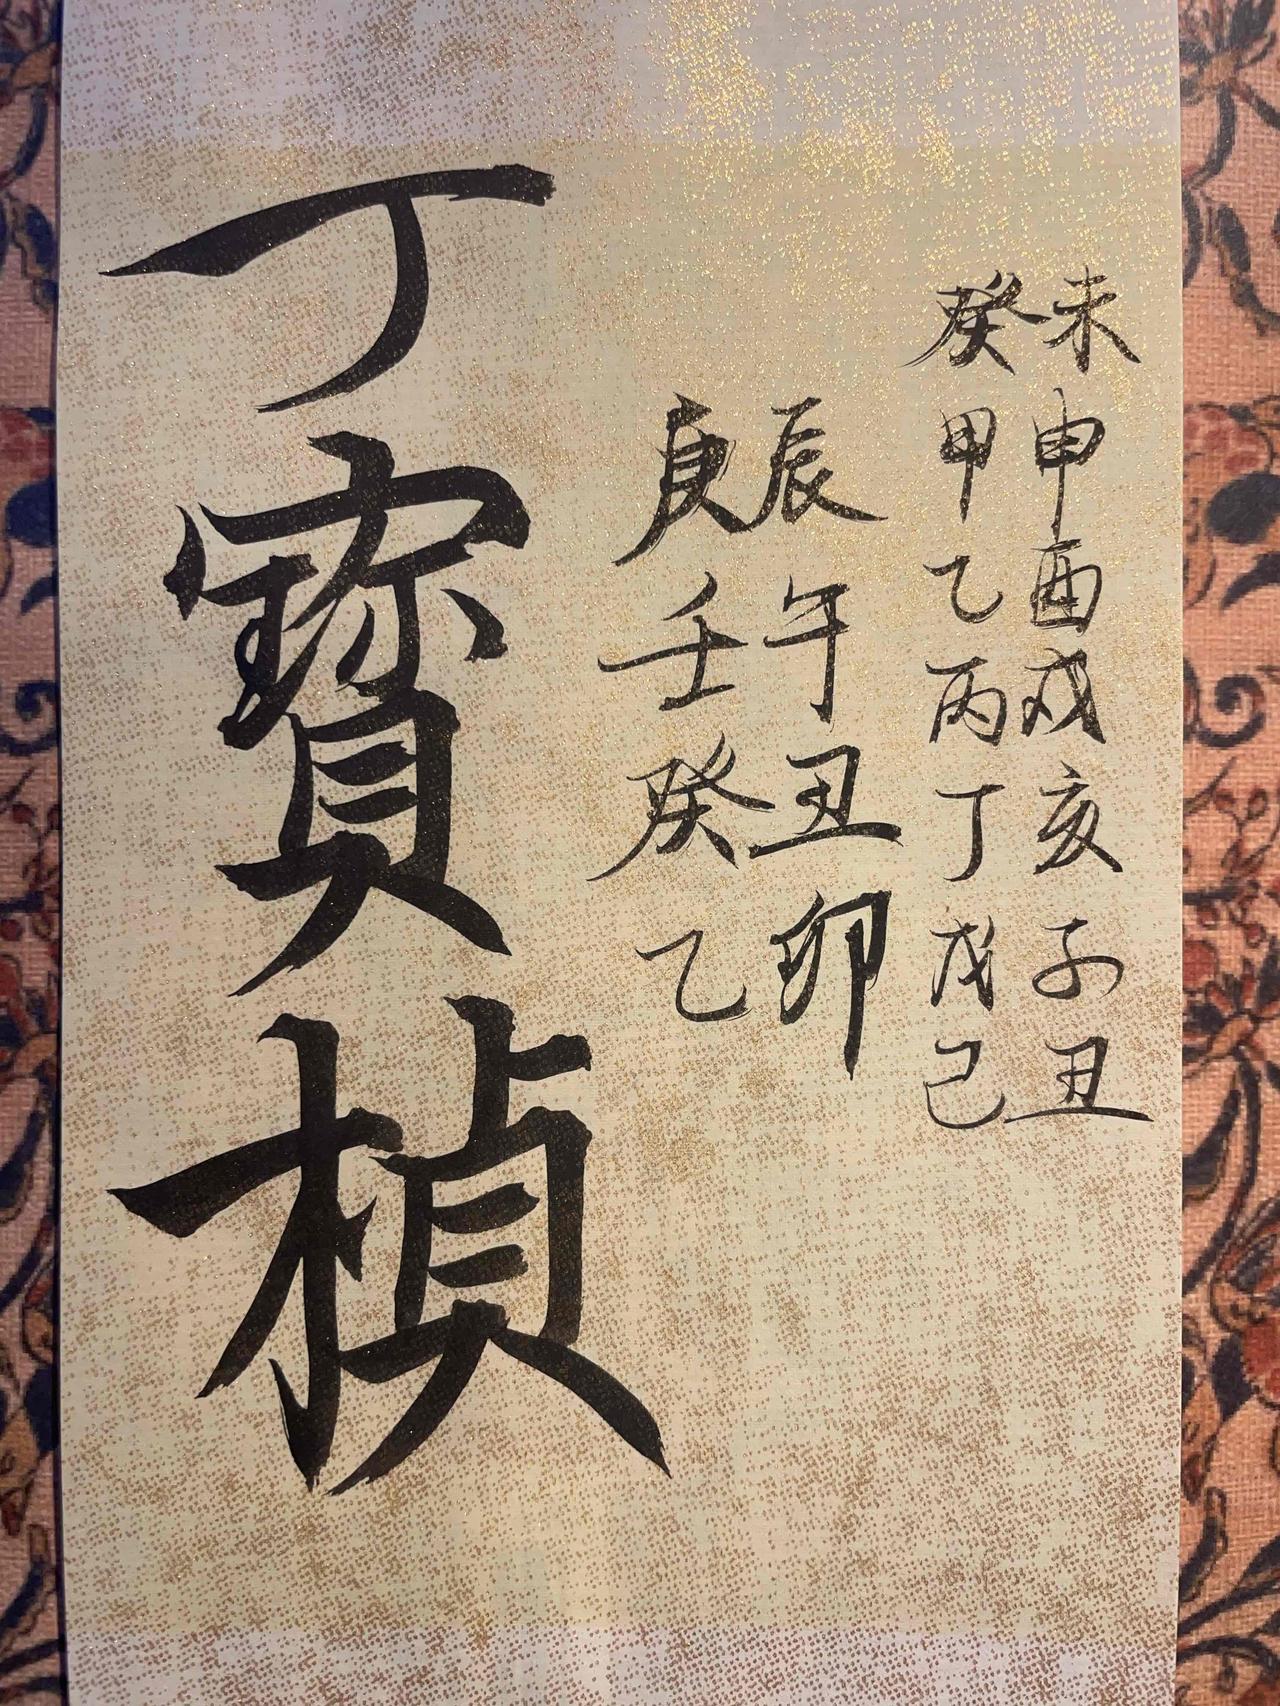 未申酉戌亥子丑
癸甲乙丙丁戊己
辰午丑卯
庚壬癸乙
丁寳楨